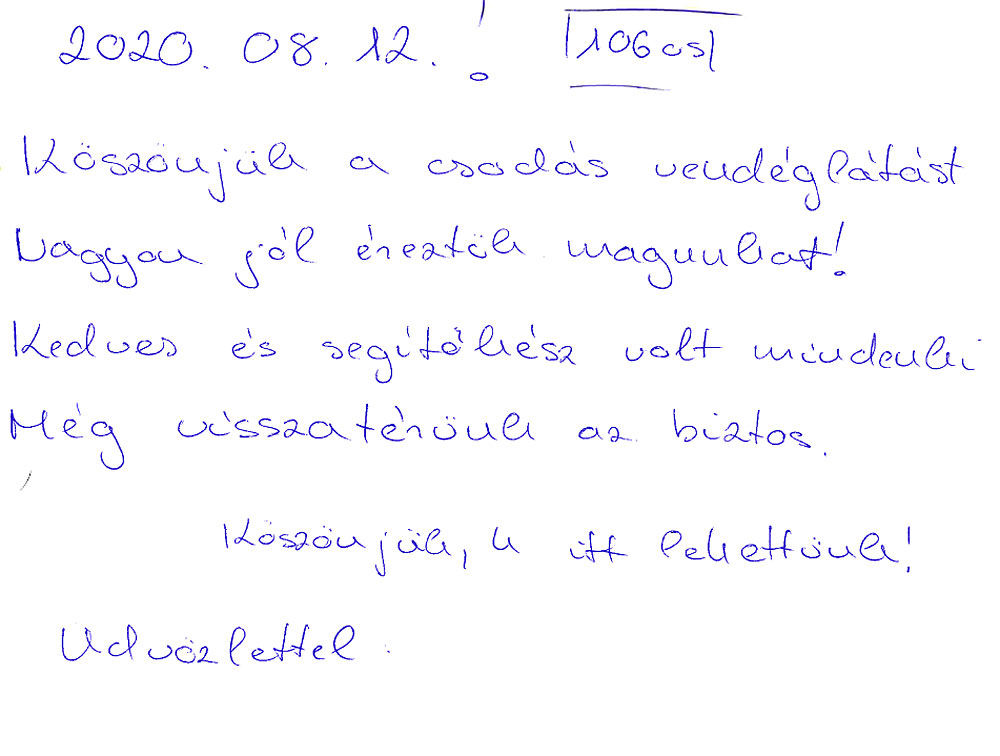 2020. 08. 12. ! 106 os
Köszönjük a csodás vendéglátást
Nagyon jól éreztük magunkat!
Kedves és segítőkész volt mindenki
Még visszatérünk az biztos.
Köszönjük, h itt lehettünk!
Üdvözlettel